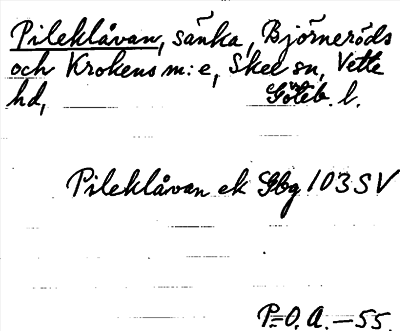 Pileklåvan, sänka, Björneröds
och Krokens m:e, Skee sn, Vette
hd, Göteb. l.
Pileklåvan ek Sbg 103 SV
P.O.A. – 55.